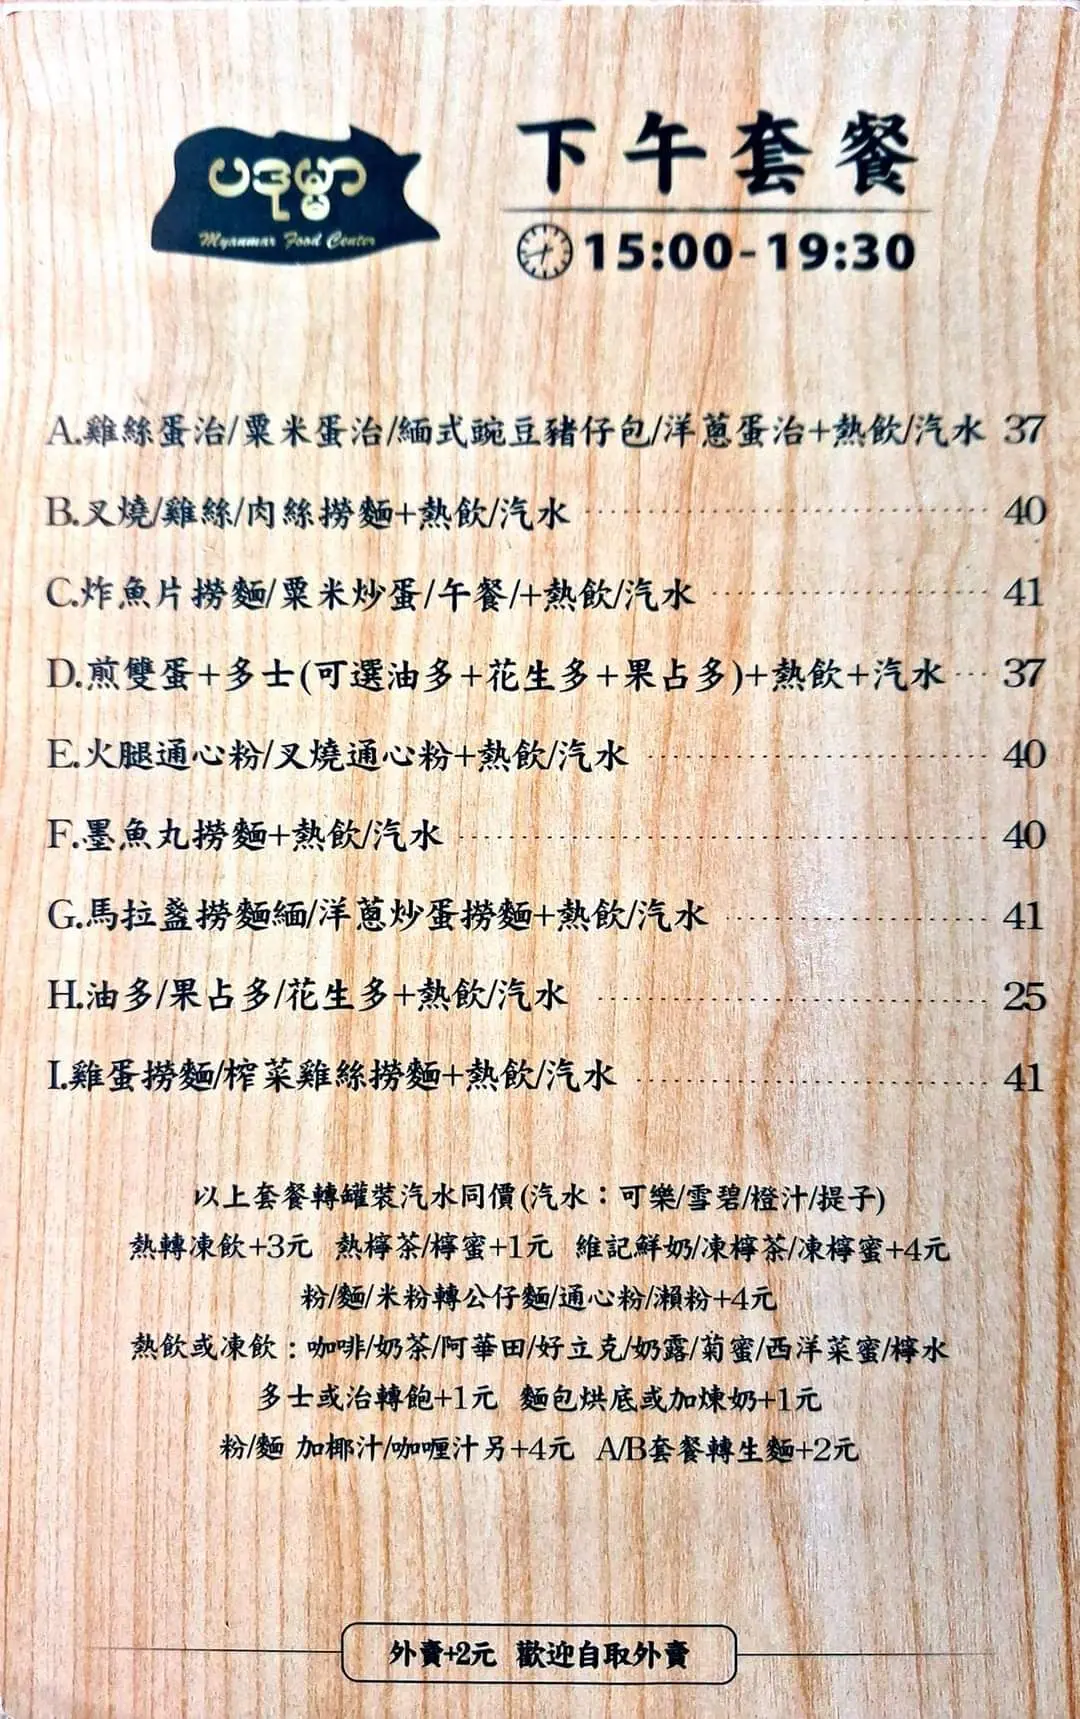 ပဒုမ္မာ
Myanmar Food Center
下午套餐
15:00-19:30
A.雞絲蛋治/粟米蛋治/緬式豌豆豬仔包/洋蔥蛋治+熱飲/汽水 37
B.叉燒/雞絲/肉絲撈麵+熱飲/汽水 40
C.炸魚片撈麵/粟米炒蛋/午餐/+熱飲/汽水 41
D.煎雙蛋+多士(可選油多+花生多+果占多)+熱飲+汽水 37
E.火腿通心粉/叉燒通心粉+熱飲/汽水 40
F.墨魚丸撈麵+熱飲/汽水 40
G.馬拉盞撈麵緬/洋蔥炒蛋撈麵+熱飲/汽水 41
H.油多/果占多/花生多+熱飲/汽水 25
I.雞蛋撈麵/榨菜雞絲撈麵+熱飲/汽水 41
以上套餐轉罐裝汽水同價(汽水：可樂/雪碧/橙汁/提子)
熱轉凍飲+3元 熱檸茶/檸蜜+1元 維記鮮奶/凍檸茶/凍檸蜜+4元
粉/麵/米粉轉公仔麵/通心粉/瀨粉+4元
熱飲或凍飲：咖啡/奶茶/阿華田/好立克/奶露/菊蜜/西洋菜蜜/檸水
多士或治轉飽+1元 麵包烘底或加煉奶+1元
粉/麵 加椰汁/咖喱汁另+4元 A/B套餐轉生麵+2元
外賣+2元 歡迎自取外賣